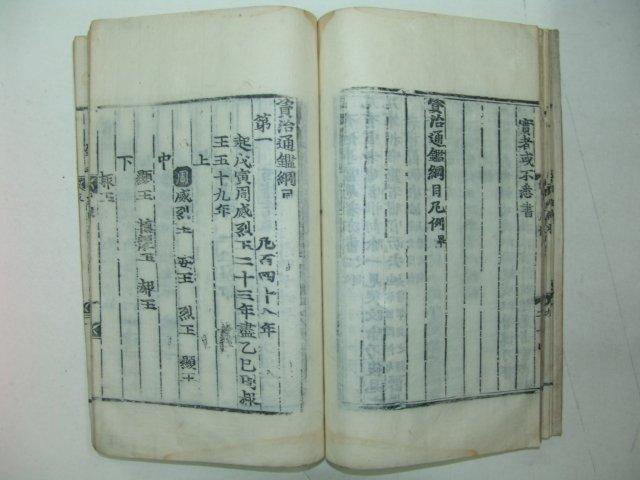 實者或不悉書
資治通鑑綱目凡例畢
資治通鑑綱目
第一
凡百四十八年
起戊寅周威烈王二十三年盡乙巳周赧
王五十九年
上
周 威烈王 安王 烈王 顯王
中
顯王 慎靚王 赧王
下
赧王